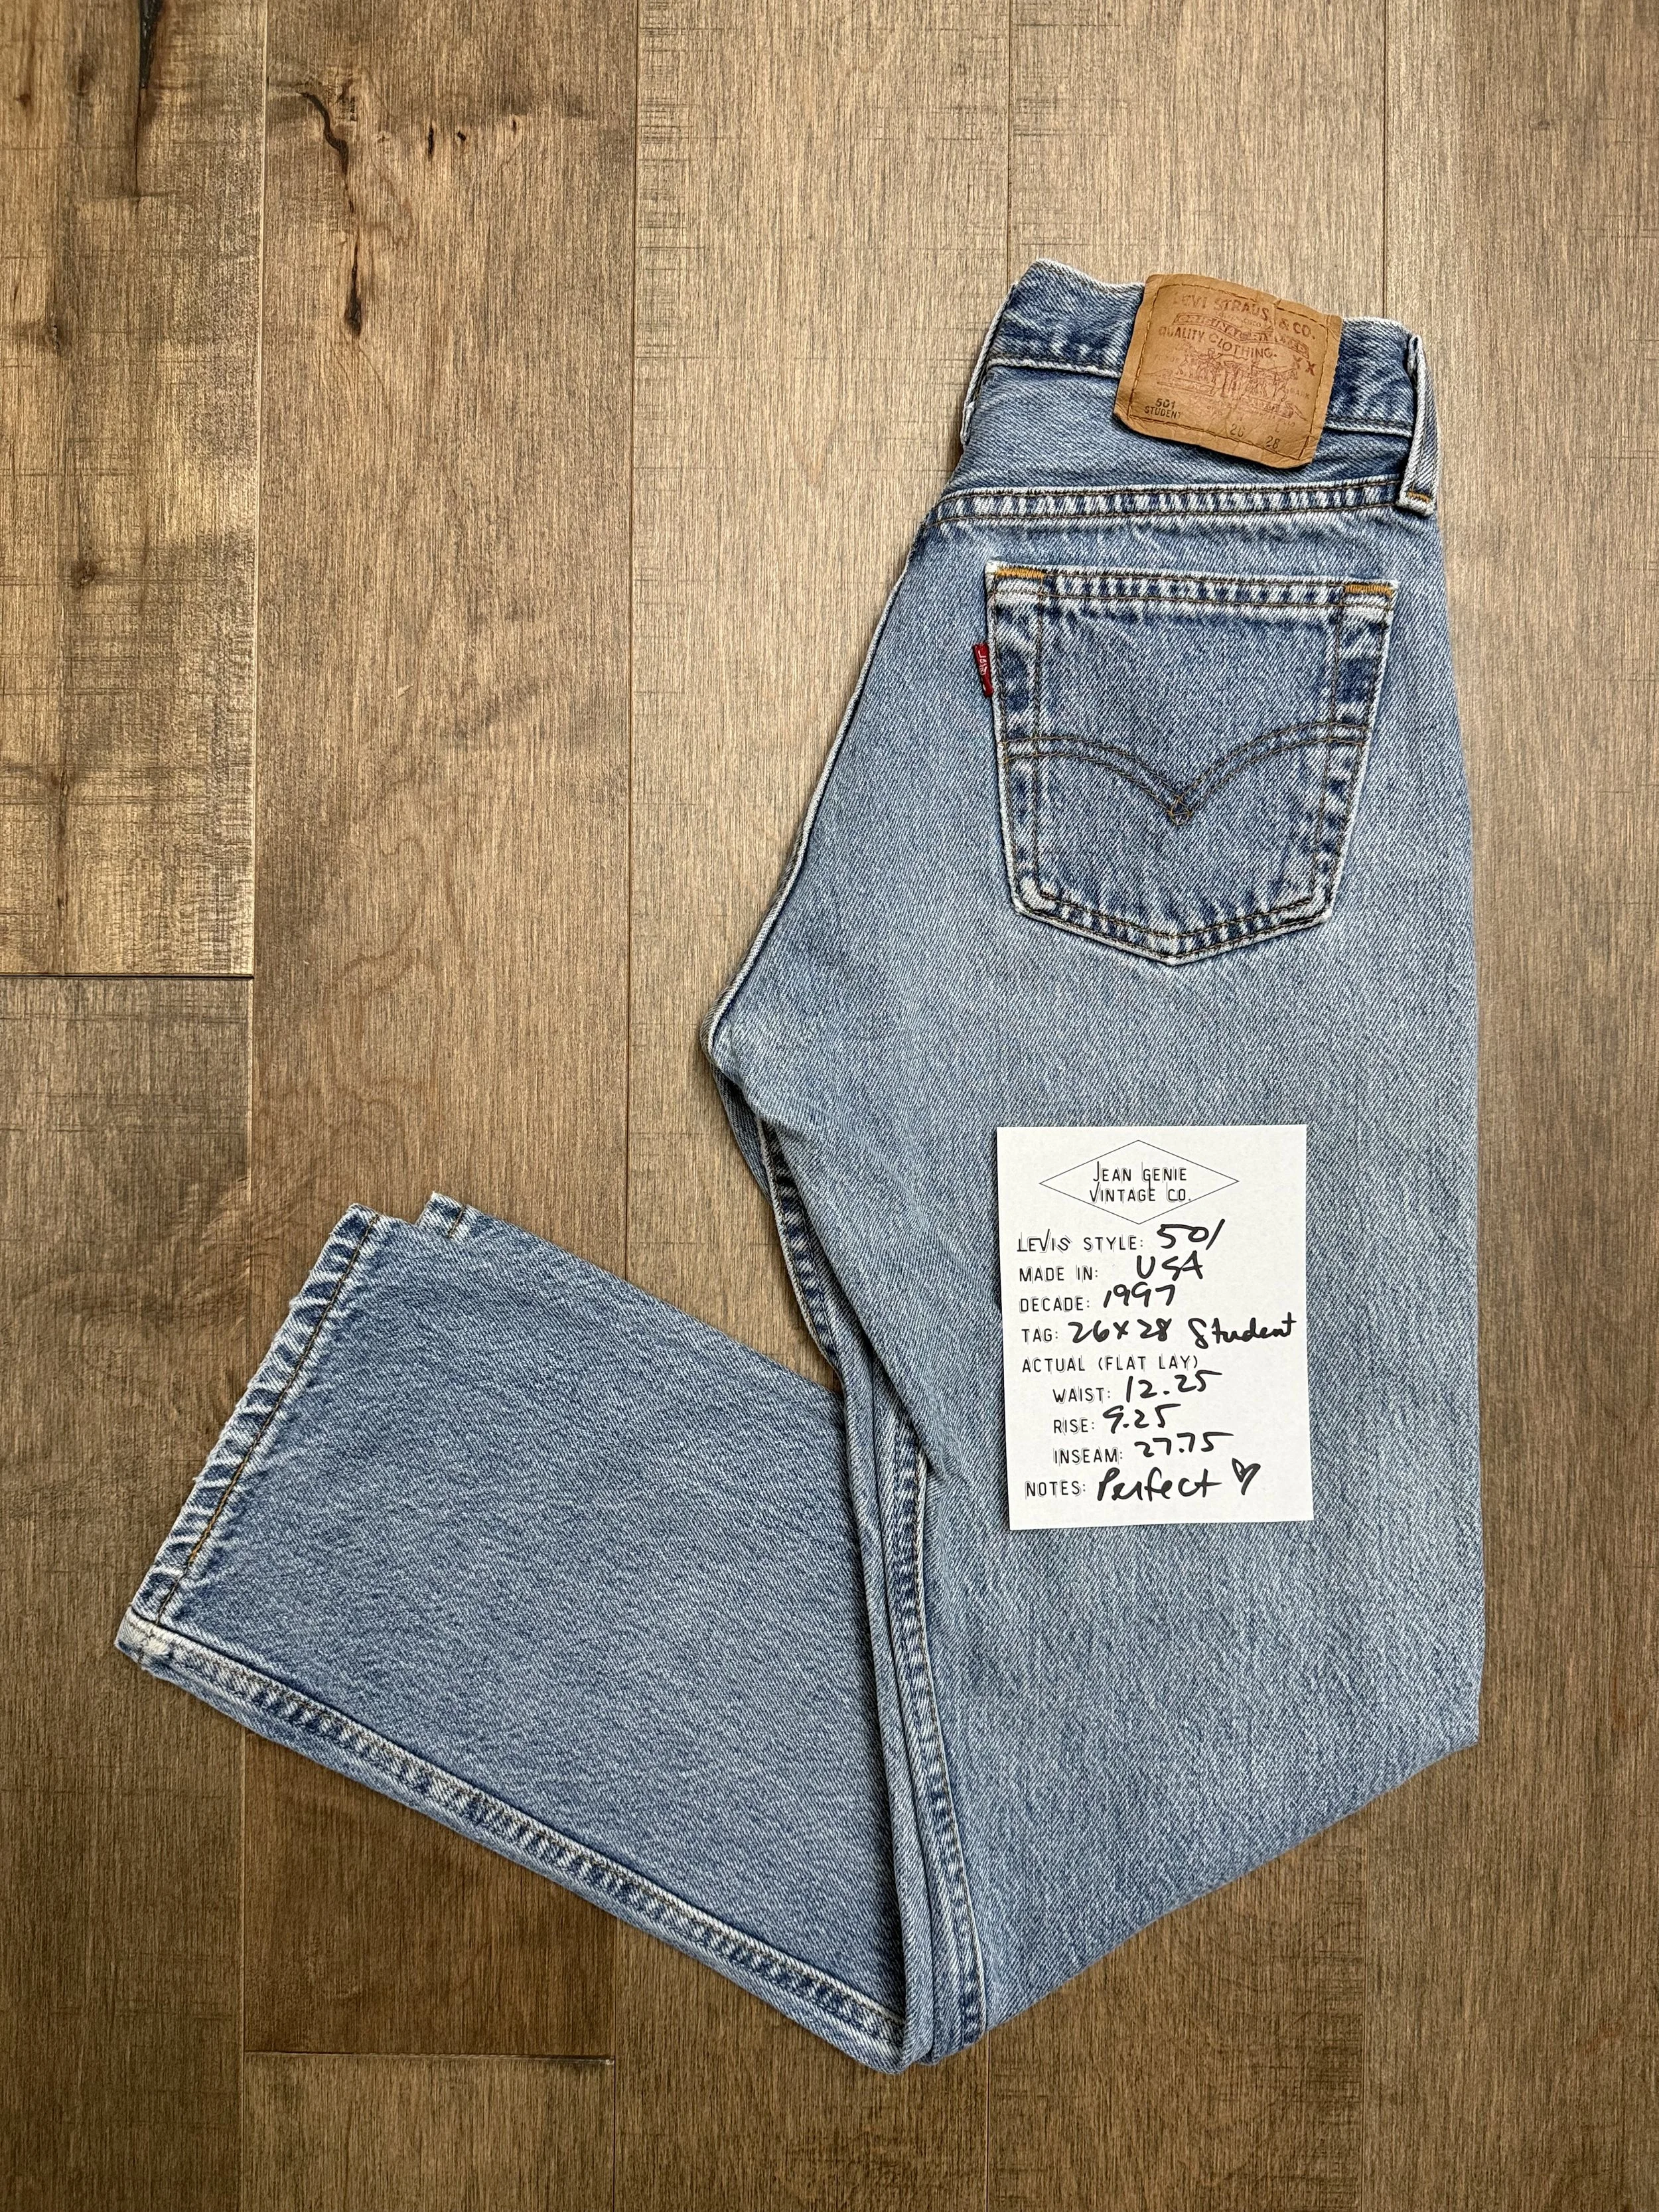 LEVI STRAUSS & CO.
QUALITY CLOTHING
XX
501
STUDENT
26 28
JEAN GENIE
VINTAGE CO.
LEVIS STYLE: 501
MADE IN: USA
DECADE: 1997
TAG: 26x28 Student
ACTUAL (FLAT LAY)
WAIST: 12.25
RISE: 9.25
INSEAM: 27.75
NOTES: Perfect ♡